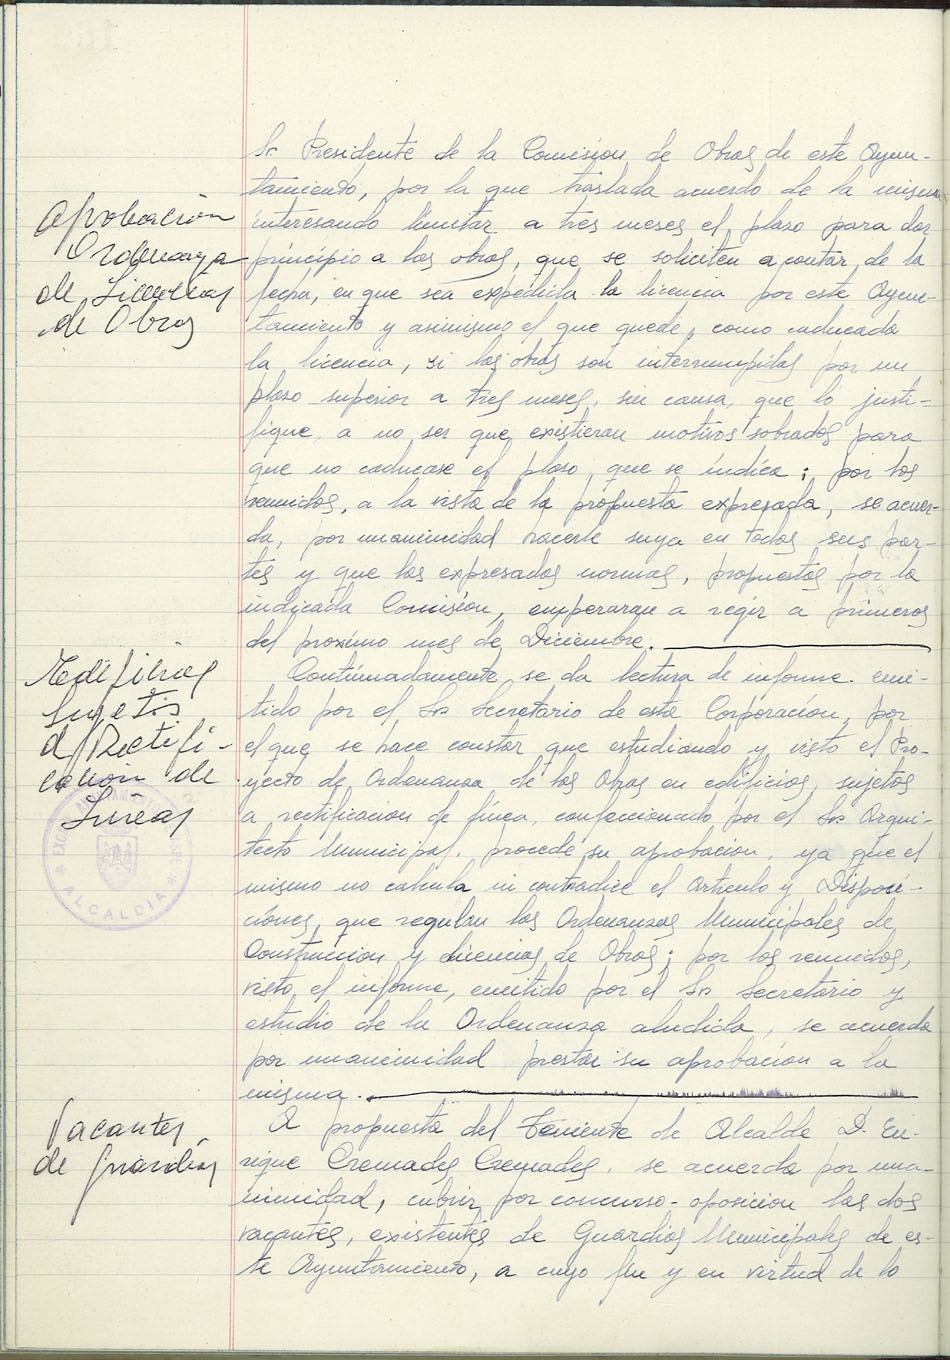 Sr. Presidente de la Comision de Obras de este Ayun-
tamiento, por la que traslada acuerdo de la misma
interesando limitar a tres meses el plazo para dar
principio a las obras, que se soliciten a contar de la
fecha, en que sea expedida la licencia por este Ayun-
tamiento y asimismo el que quede, como caducada
la licencia, si las obras son interrumpidas por un
plazo superior a tres meses, sin causa, que lo justi-
fique, a no ser que existieran motivos sobrados para
que no caducase el plazo, que se indica; por los
reunidos, a la vista de la propuesta expresada, se acuer-
da, por unanimidad hacerla suya en todas sus par-
tes y que las expresadas normas, propuestas por la
indicada Comisión, emperaran a regir a primeros
del proximo mes de Diciembre.
Aprobación
Ordenanza
de Licencias
de Obras
Continuadamente, se da lectura de informe emi-
tido por el Sr. Secretario de esta Corporacion, por
el que se hace constar que estudiando y visto el Pro-
yecto de Ordenanza de las Obras en edificios, sujetos
a rectificacion de finea, confeccionado por el Sr. Arqui-
tecto Municipal, procede su aprobacion, ya que el
mismo no calcula ni contradice el Articulo y Disposi-
ciones, que regulan las Ordenanzas Municipales de
Construccion y Licencias de Obras; por los reunidos,
visto el informe, emitido por el Sr. Secretario y
estudio de la Ordenanza aludida, se acuerda
por unanimidad prestar su aprobacion a la
misma.
sujetos
a Rectifi-
cación de
Lineas
EXCMO. AYUNTAMIENTO
* ALCALDIA *
A propuesta del Teniente de Alcalde D. En-
rique Cremades Cremades, se acuerda por una-
nimidad, cubrir por concurso-oposicion las dos
vacantes, existentes de Guardias Municipales de es-
te Ayuntamiento, a cuyo fin y en virtud de lo
Vacantes
de Guardias